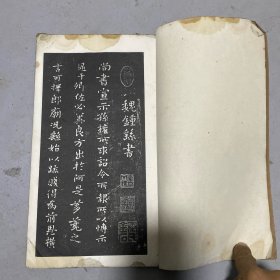 魏鍾繇書
尚書宣示孫權所求詔令所報所以博示
逮于卿佐必冀良方出於阿是芻蕘之
言可擇郎廟況繇始以疏賤得為前恩橫